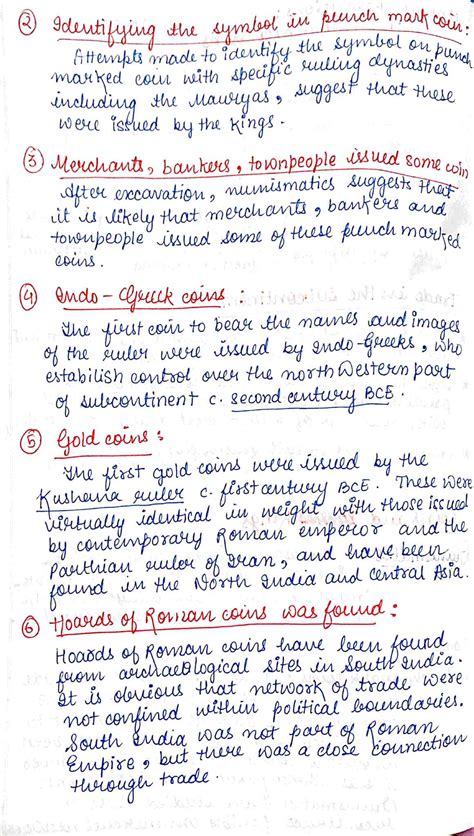 ② Identifying the symbol in punch mark coin:
Attempts made to identify the symbol on punch
marked coin with specific ruling dynasties
including the Mauryas, suggest that these
were issued by the Kings.
③ Merchants, bankers, townpeople issued some coin
After excavation, numismatics suggests that
it is likely that merchants, bankers and
townpeople issued some of these punch marked
coins.
④ Indo-Greek coins:
The first coin to bear the names and images
of the ruler were issued by Indo-Greeks, who
estabilish control over the north Western part
of subcontinent c. second century BCE.
⑤ Gold coins:
The first gold coins were issued by the
Kushana ruler c. first century BCE. These were
virtually identical in weight with those issued
by contemporary Roman emperor and the
Parthian ruler of Iran, and have been
found in the North India and Central Asia.
⑥ Hoards of Roman coins was found:
Hoards of Roman coins have been found
from archaeological sites in South India.
It is obvious that network of trade were
not confined within political boundaries.
South India was not part of Roman
Empire, but there was a close connection
through trade.